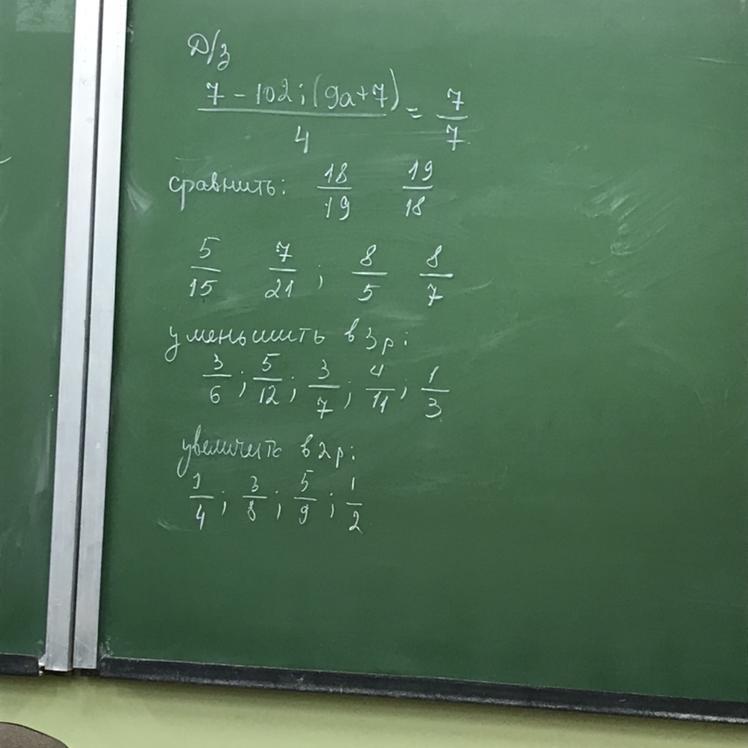 Д/з
7 - 102 : (9a + 7) / 4 = 7/7
сравнить: 18/19 19/18
5/15 7/21 ; 8/5 8/7
уменьшить в 3 р:
3/6 ; 5/12 ; 3/7 ; 4/11 ; 1/3
увеличить в 2 р:
1/4 ; 3/8 ; 5/9 ; 1/2